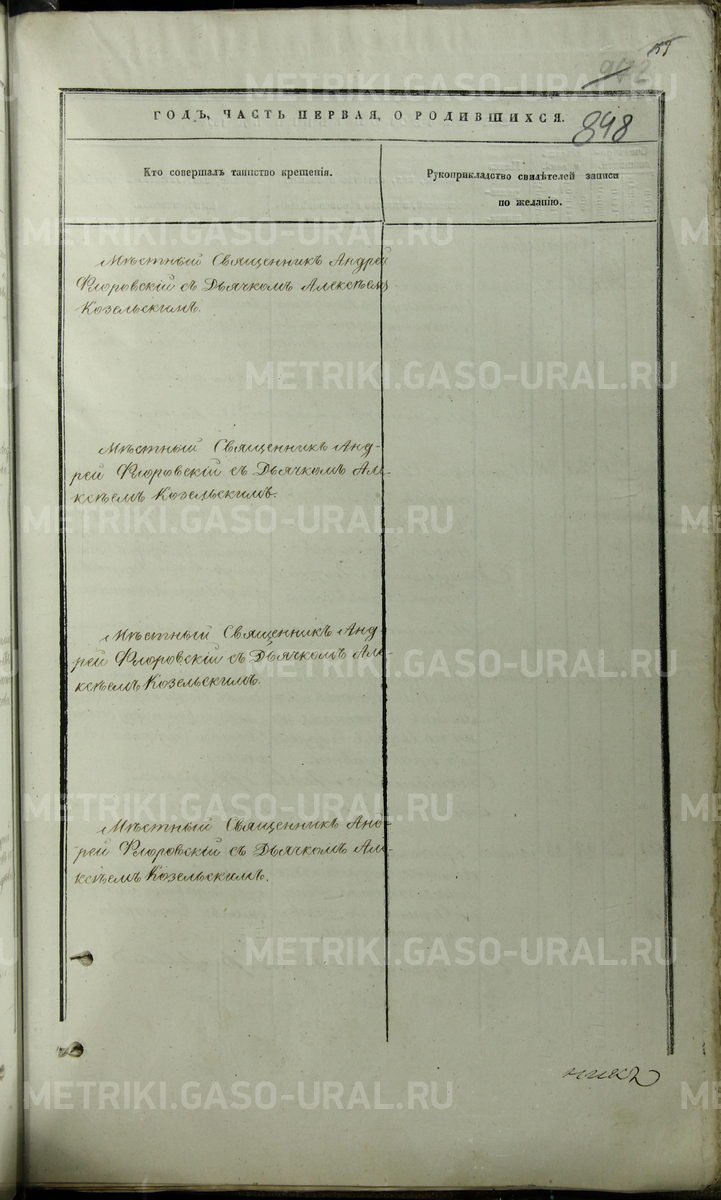 942
848
ГОДЪ, ЧАСТЬ ПЕРВАЯ, О РОДИВШИХСЯ.
Кто совершалъ таинство крещенія.
Рукоприкладство свидѣтелей записи
по желанію.
Мѣстный Священникъ Андрей
Флоровскій съ Дьячкомъ Алексѣемъ
Козельскимъ.
Мѣстный Священникъ Анд-
рей Флоровскій съ Дьячкомъ Але-
ксѣемъ Козельскимъ.
Мѣстный Священникъ Анд-
рей Флоровскій съ Дьячкомъ Але-
ксѣемъ Козельскимъ.
Мѣстный Священникъ Анд-
рей Флоровскій съ Дьячкомъ Але-
ксѣемъ Козельскимъ.
никъ
METRIKI.GASO-URAL.RU